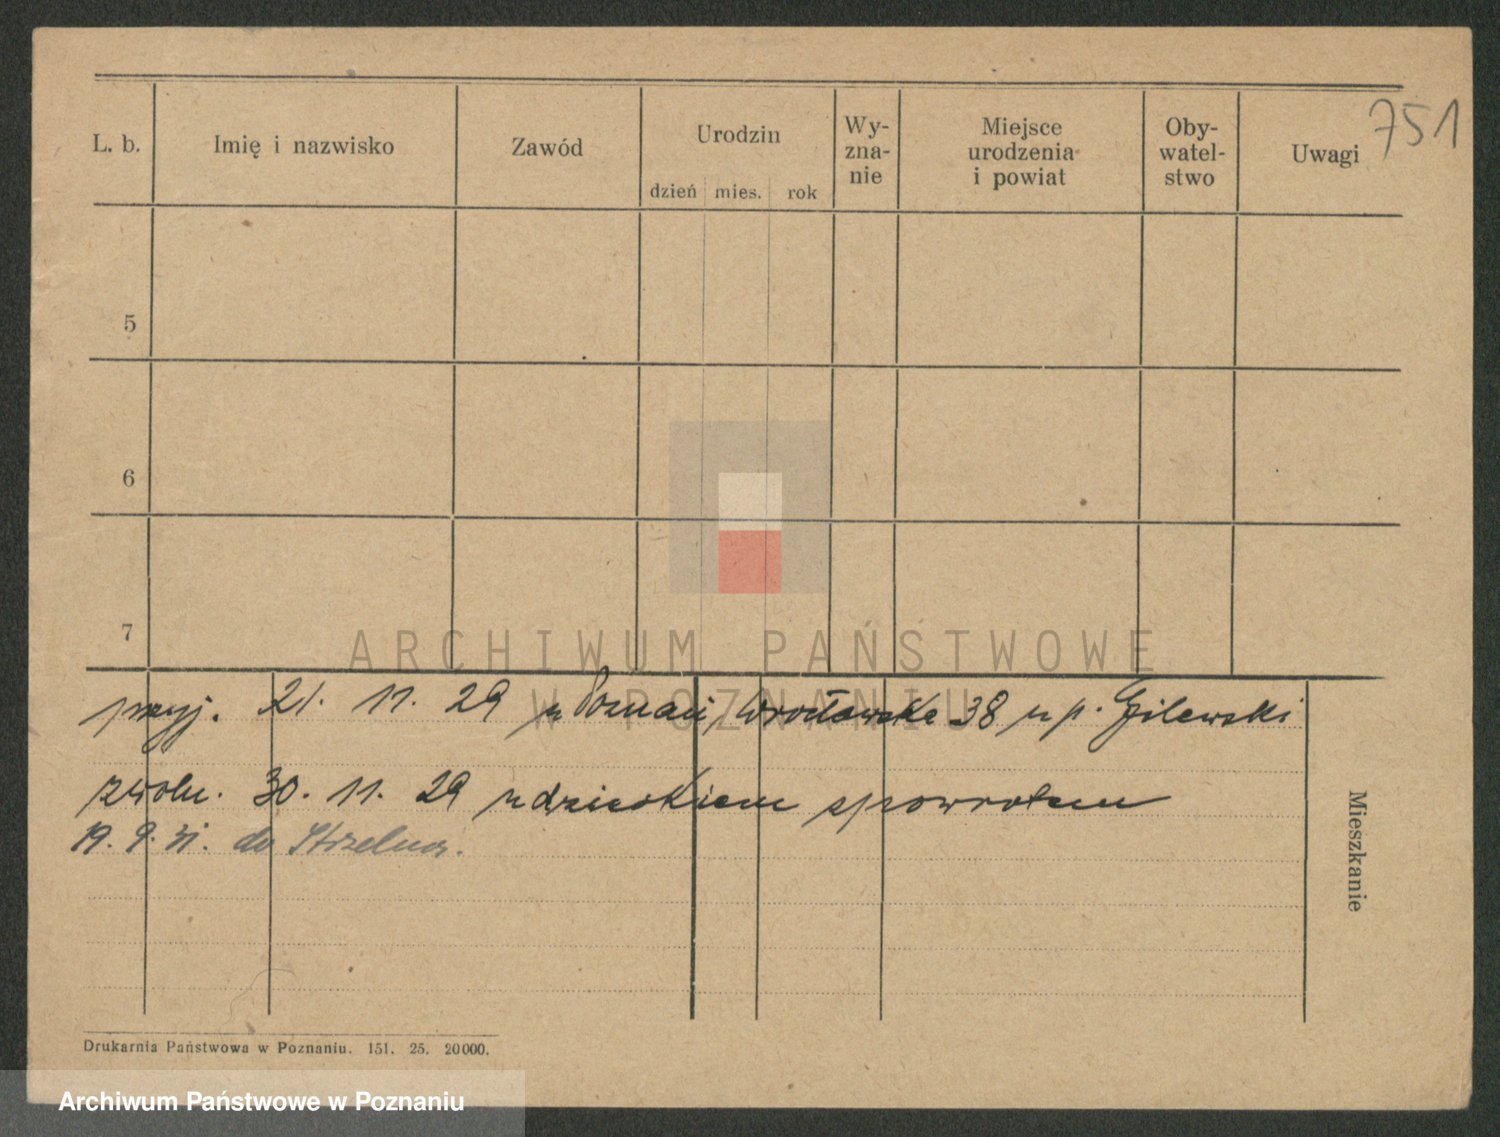 751
L. b. Imię i nazwisko Zawód Urodzin dzień mies. rok Wy-zna-nie Miejsce urodzenia i powiat Oby-watel-stwo Uwagi
5
6
7
ARCHIWUM PAŃSTWOWE
W POZNANIU
przyj. 21. 11. 29 z Poznań, Wrocławska 38 u p. Gilewski
zwoln. 30. 11. 29 z dzieckiem spowrotem
19. 9. 31. do Strzelna.
Mieszkanie
Drukarnia Państwowa w Poznaniu. 151. 25. 20000.
Archiwum Państwowe w Poznaniu